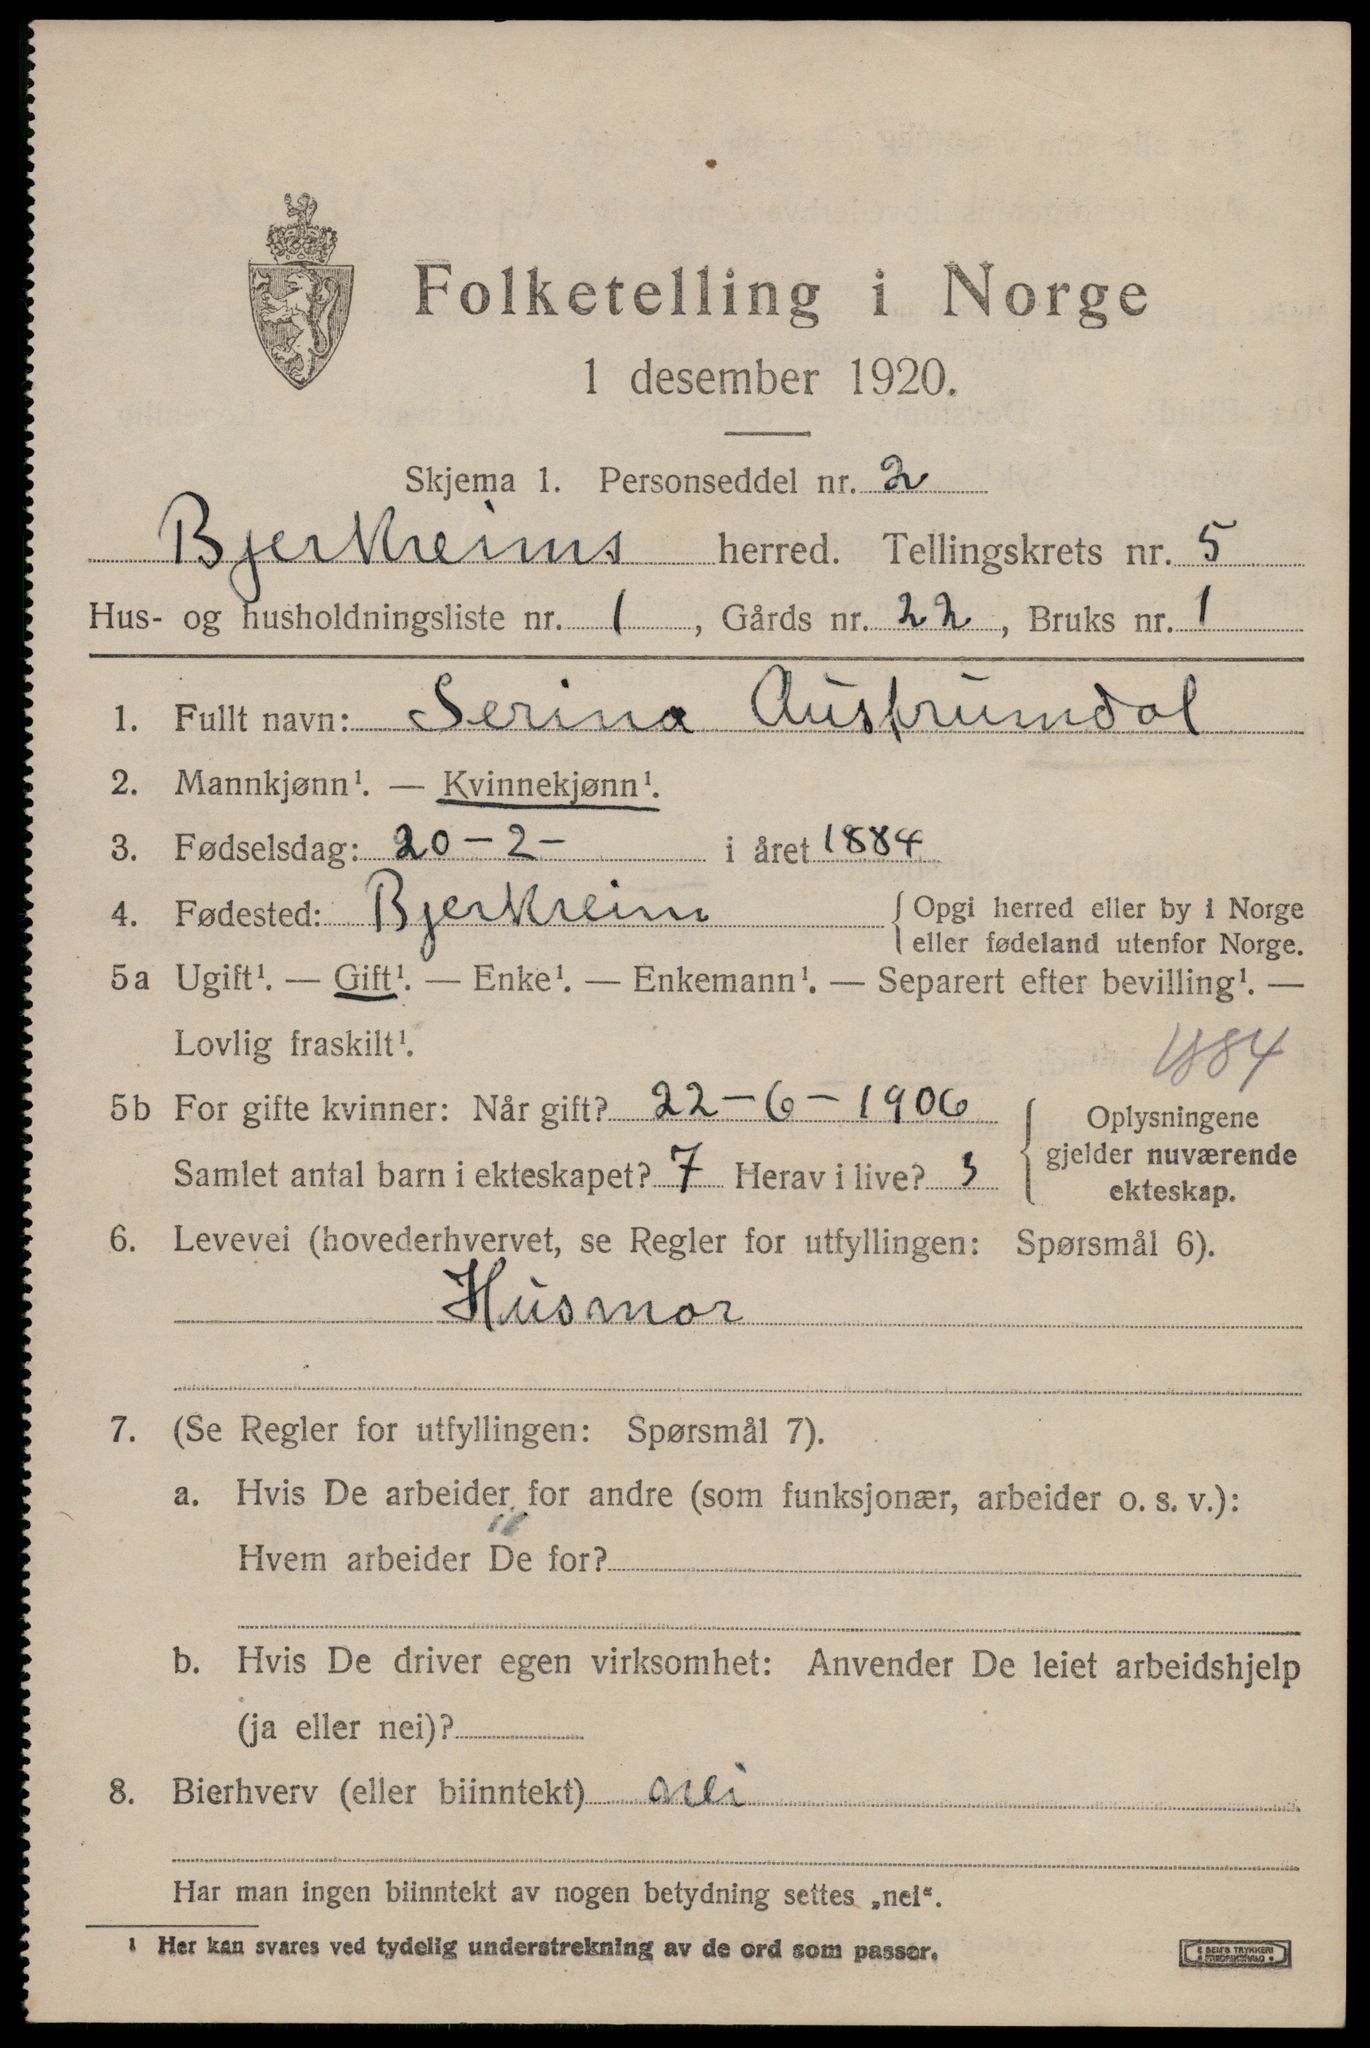 Folketelling i Norge
1 desember 1920.
Skjema 1. Personseddel nr. 2
Bjerkreims herred. Tellingskrets nr. 5
Hus- og husholdningsliste nr. 1, Gårds nr. 22, Bruks nr. 1
1. Fullt navn: Serina Austrumdal
2. Mannkjønn¹. — Kvinnekjønn¹.
3. Fødselsdag: 20-2- i året 1884
4. Fødested: Bjerkreim { Opgi herred eller by i Norge
eller fødeland utenfor Norge.
5a Ugift¹. — Gift¹. — Enke¹. — Enkemann¹. — Separert efter bevilling¹. —
Lovlig fraskilt¹.
1884
5b For gifte kvinner: Når gift? 22-6-1906
Samlet antal barn i ekteskapet? 7 Herav i live? 3
{ Oplysningene
gjelder nuværende
ekteskap.
6. Levevei (hovederhvervet, se Regler for utfyllingen: Spørsmål 6).
Husmor
7. (Se Regler for utfyllingen: Spørsmål 7).
a. Hvis De arbeider for andre (som funksjonær, arbeider o. s. v.):
Hvem arbeider De for?
b. Hvis De driver egen virksomhet: Anvender De leiet arbeidshjelp
(ja eller nei)?
8. Bierhverv (eller biinntekt) nei
Har man ingen biinntekt av nogen betydning settes „nei“.
¹ Her kan svares ved tydelig understrekning av de ord som passer.